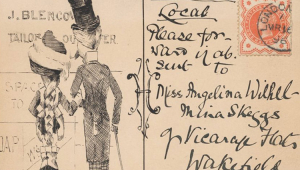 J. BLENCO
TAILOR
Local
Please for
ward if ab
sent to
Miss Angelina Wilhel
mina Skeggs
9 Vicarage Flats
Wakefield
LONDON